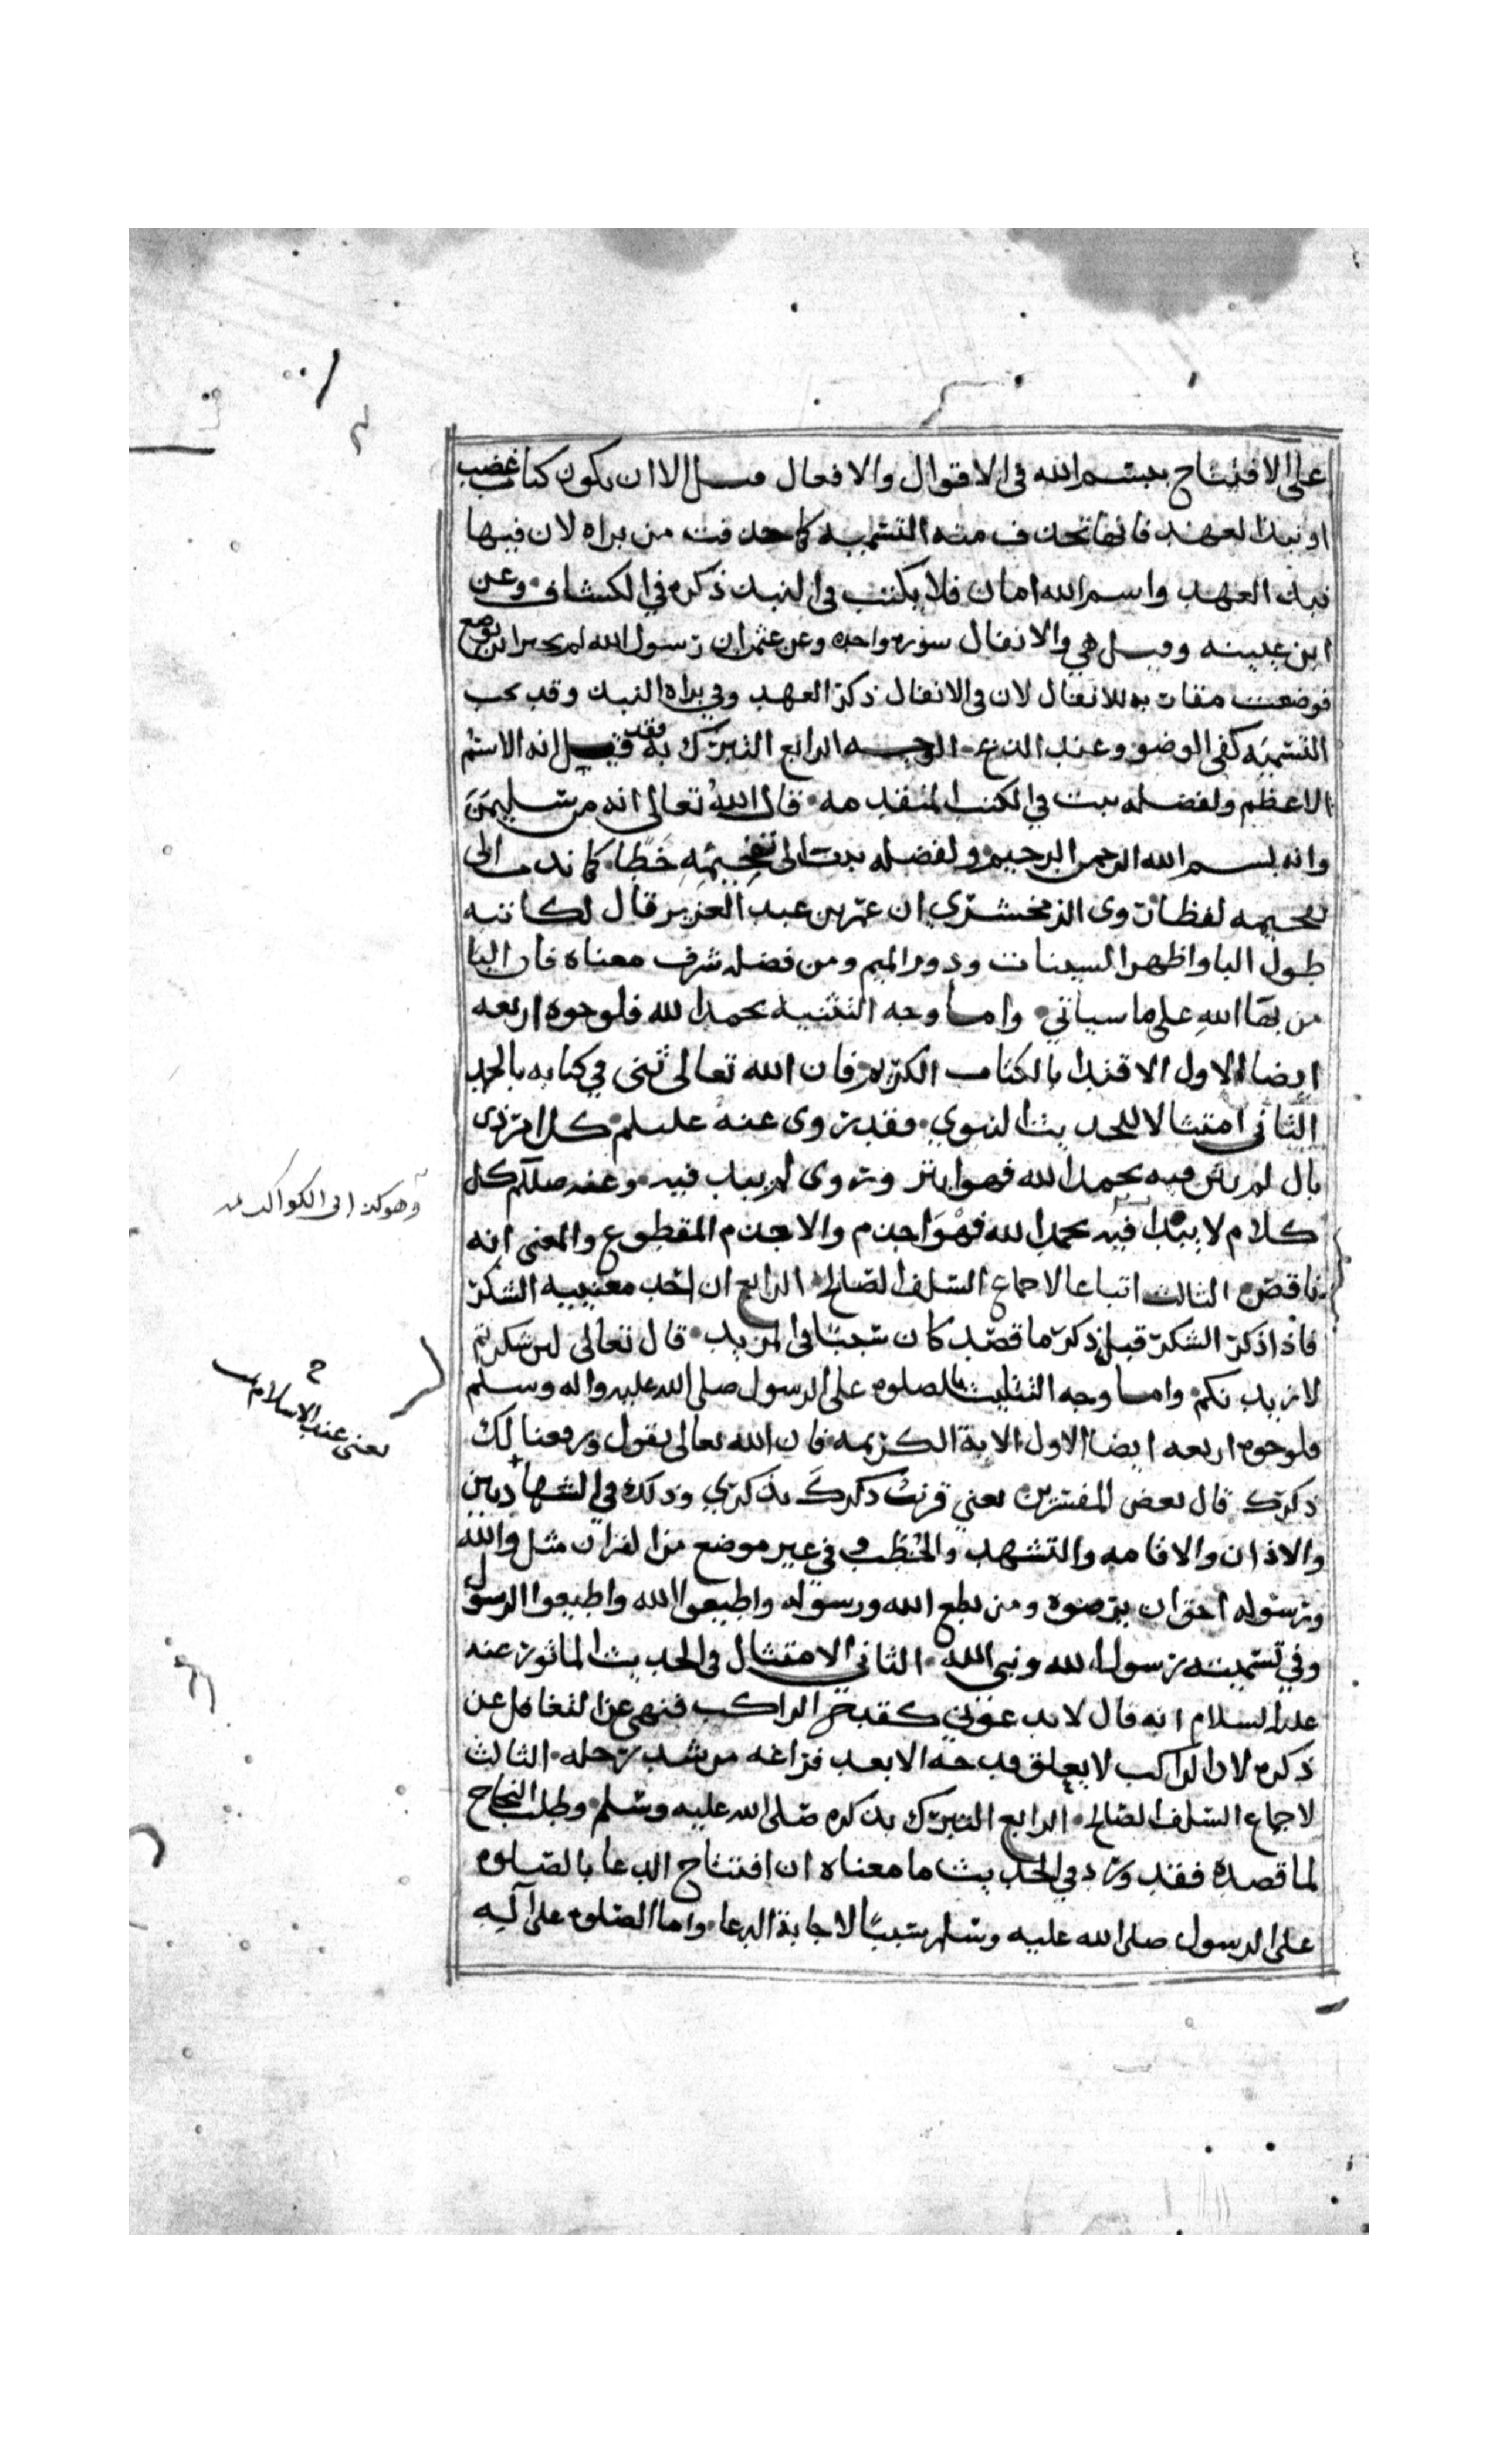 على الافتتاح ببسم الله في الاقوال والافعال قيل الا ان يكون كتاب غضب
او نبذ العهد فانها تحذف منه التسميه كما حذفت من براه لان فيها
نبذ العهد واسم الله امان فلا يكتب في النبذ ذكره في الكشاف وعن
ابن عيينه وقيل هي والانفال سوره واحده وعن عثمان ان رسول الله لم يخبر اين توضع
فوضعت مقاربه للانفال لان في الانفال ذكر العهد وفي براه النبذ وقد تجب
التسميه كفي الوضو وعند الذبح الوجه الرابع التبرك به فقد قيل انه الاسم
الاعظم ولفضله بدت في الكتب المتقدمه قال الله تعالى انه من سليمن
وانه بسم الله الرحمن الرحيم ولفضله ندب الى تفخيمه خطا كما ندب الى
تفخيمه لفظا روى الزمخشري ان عمر بن عبد العزيز قال لكاتبه
طول البا واظهر السينات ودور الميم ومن فضله شرف معناه فان البا
من بها الله على ماسياتي واما وجه التثنية بحمد الله فلوجوه اربعه
ايضا الاول الاقتدا بالكتاب الكريم فان الله تعالى ثنى في كتابه بالحمد
الثاني امتثالا للحديث النبوي فقد روى عنه عليلم كل امر ذى
بال لم يثن فيه بحمد الله فهو ابتر وروى لم يبدا فيه وعنه صللم كل
كلام لا يبدا فيه بحمد الله فهو اجذم والاجذم المقطوع والمعنى انه
ناقص الثالث اتباعا لاجماع السلف الصالح الرابع ان احد معنييه الشكر
فاذا ذكر الشكر قبل ذكر ما قصد كان سببا في المزيد قال تعالى لين شكرتم
لازيدنكم واما وجه التثليث بالصلوه على الرسول صلى الله عليه واله وسلم
فلوجوه اربعه ايضا الاول الاية الكريمه فان الله تعالى يقول ورفعنا لك
ذكرك قال بعض المفسرين يعني قرنت ذكرك بذكري وذلك في الشهادتين
والاذان والاقامه والتشهد والخطب وفي غير موضع من القران مثل والله
ورسوله احق ان يرضوه ومن يطع الله ورسوله واطيعوا الله واطيعوا الرسول
وفي تسميته رسول الله ونبي الله الثاني الامتثال في الحديث الماثور عنه
عليه السلام انه قال لا تدعوني كقدح الراكب فنهى عن التغافل عن
ذكره لان الراكب لا يعلق قدحه الا بعد فراغه من شد رحله الثالث
لاجماع السلف الصالح الرابع التبرك بذكره صلى الله عليه وسلم وطلب النجاح
لما قصده فقد ورد في الحديث ما معناه ان افتتاح الدعا بالصلوه
على الرسول صلى الله عليه وسلم سببا لاجابة الدعا واما الصلوه على اله
وهو كذا في الكواكب
يعني عند الاسلام